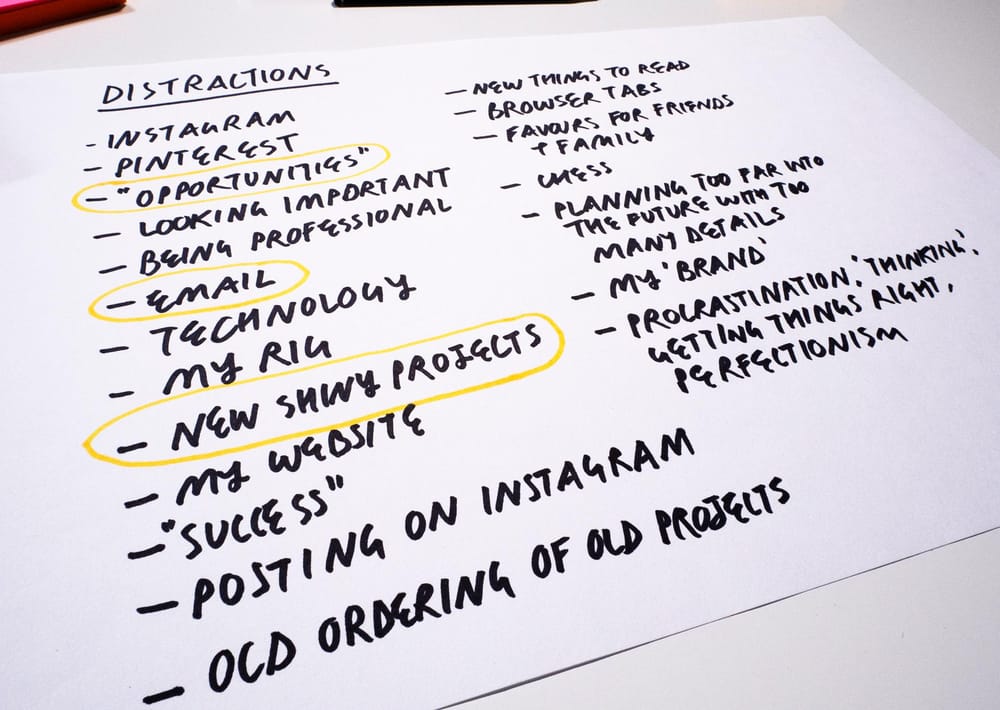 DISTRACTIONS
- INSTAGRAM
- PINTEREST
- "OPPORTUNITIES"
- LOOKING IMPORTANT
- BEING PROFESSIONAL
- EMAIL
- TECHNOLOGY
- MY RIG
- NEW SHINY PROJECTS
- MY WEBSITE
- "SUCCESS"
- POSTING ON INSTAGRAM
- OCD ORDERING OF OLD PROJECTS
- NEW THINGS TO READ
- BROWSER TABS
- FAVOURS FOR FRIENDS
+ FAMILY
- CHESS
- PLANNING TOO FAR INTO
THE FUTURE WITH TOO
MANY DETAILS
- MY 'BRAND'
- PROCRASTINATION, 'THINKING',
GETTING THINGS RIGHT,
PERFECTIONISM